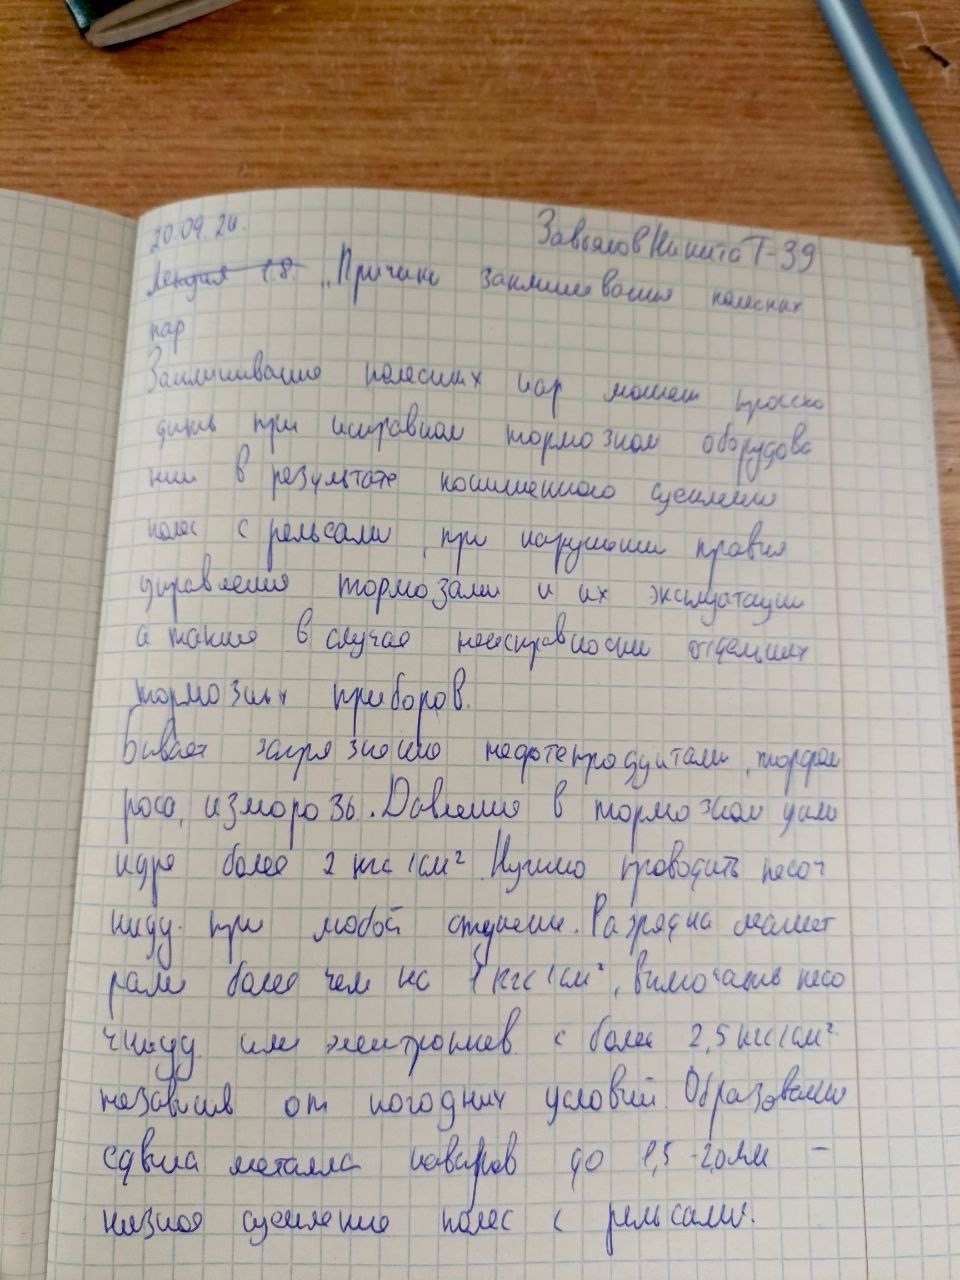 20.09.24. Завьялов Никита Т-39
Лекция 18. "Причины заклинивания колесных
пар
Заклинивание колесных пар может происхо
дить при исправном тормозном оборудова
нии в результате пониженного сцепления
колес с рельсами, при нарушении правил
управления тормозами и их эксплуатации
а также в случае неисправности отдельных
тормозных приборов.
Бывает загрязнение нефтепродуктами, торфом
роса, изморозь. Давление в тормозном цили
ндре более 2 кгс/см² Нужно проводить песоч
ницу при любой ступени. Разрядка
более чем на 1 кгс/см², включать песо
чницу или электропнев. с более 2,5 кгс/см²
независив от погодных условий. Образование
сдвига металла наваров до 1,5-2,0мм –
низкое сцепление колес с рельсами.